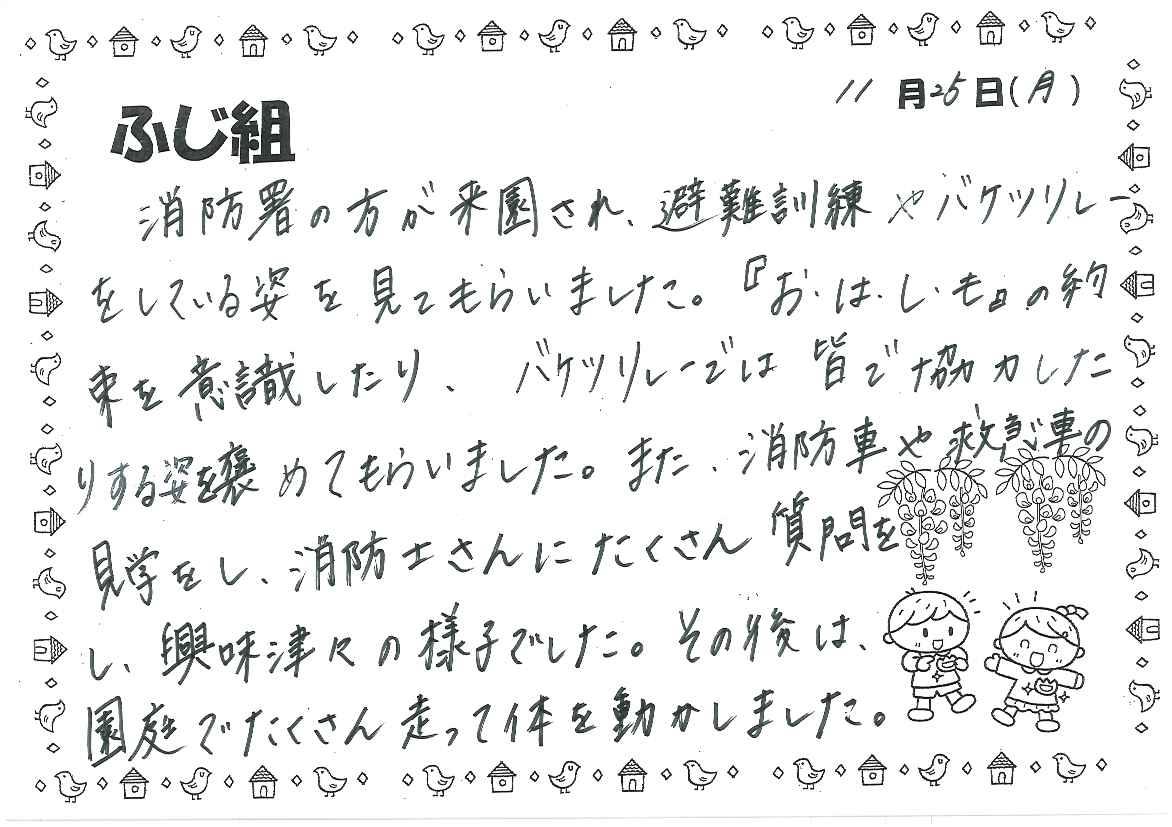 11月25日(月)
ふじ組
消防署の方が来園され、避難訓練やバケツリレー
をしている姿を見てもらいました。『お・は・し・も』の約
束を意識したり、バケツリレーでは皆で協力した
りする姿を褒めてもらいました。また、消防車や救急車の
見学をし、消防士さんにたくさん質問を
し、興味津々の様子でした。その後は、
園庭でたくさん走って体を動かしました。